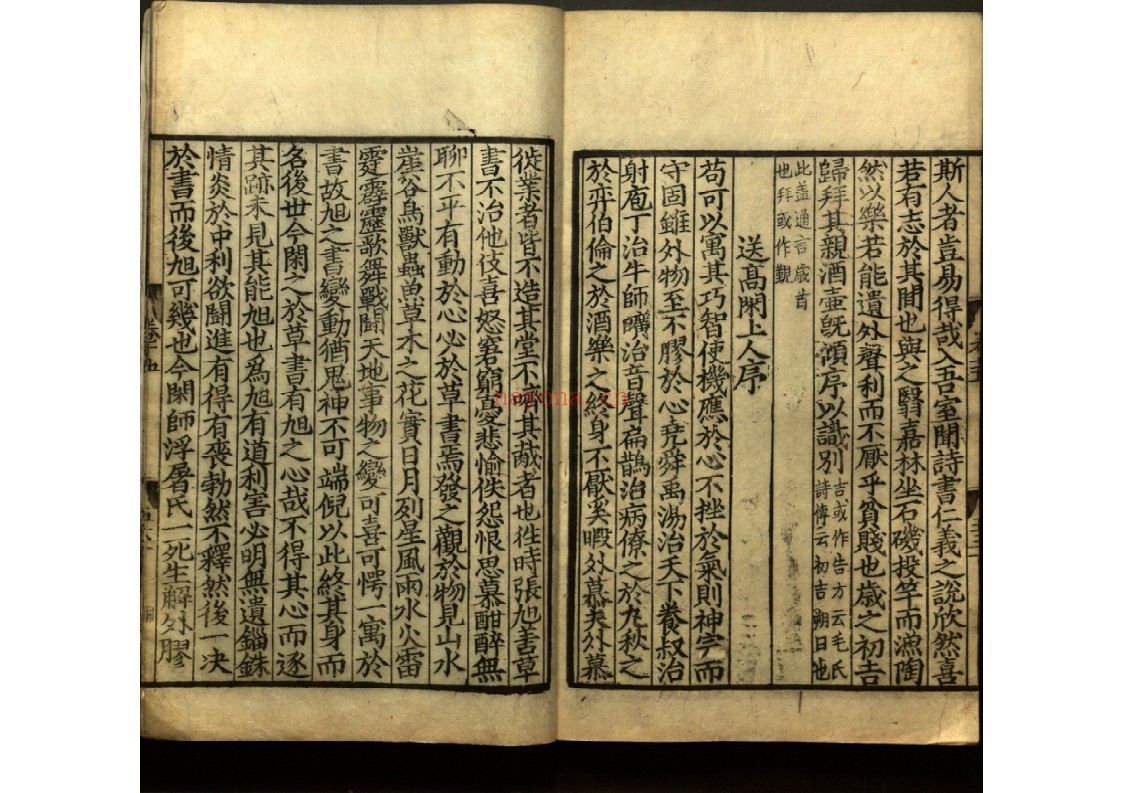 斯人者豈易得哉入吾室聞詩書仁義之說欣然喜
若有志於其間也與之翳嘉林坐石磯投竿而漁陶
然以樂若能遺外聲利而不厭乎貧賤也歲之初吉
歸拜其親酒壺旣傾序以識別吉或作告方云毛氏
詩傳云初吉朔日也
此蓋通言歲首
也拜或作覲
送高閑上人序
苟可以寓其巧智使機應於心不挫於氣則神完而
守固雖外物至不膠於心堯舜禹湯治天下養叔治
射庖丁治牛師曠治音聲扁鵲治病僚之於丸秋之
於弈伯倫之於酒樂之終身不厭奚暇外慕夫外慕
徙業者皆不造其堂不嚌其胾者也徃時張旭善草
書不治他伎喜怒窘窮憂悲愉佚怨恨思慕酣醉無
聊不平有動於心必於草書焉發之觀於物見山水
崖谷鳥獸蟲魚草木之花實日月列星風雨水火雷
霆霹靂歌舞戰鬬天地事物之變可喜可愕一寓於
書故旭之書變動猶鬼神不可端倪以此終其身而
名後世今閑之於草書有旭之心哉不得其心而逐
其跡未見其能旭也爲旭有道利害必明無遺錙銖
情炎於中利欲鬬進有得有喪勃然不釋然後一决
於書而後旭可幾也今閑師浮屠氏一死生解外膠
nagona.cn